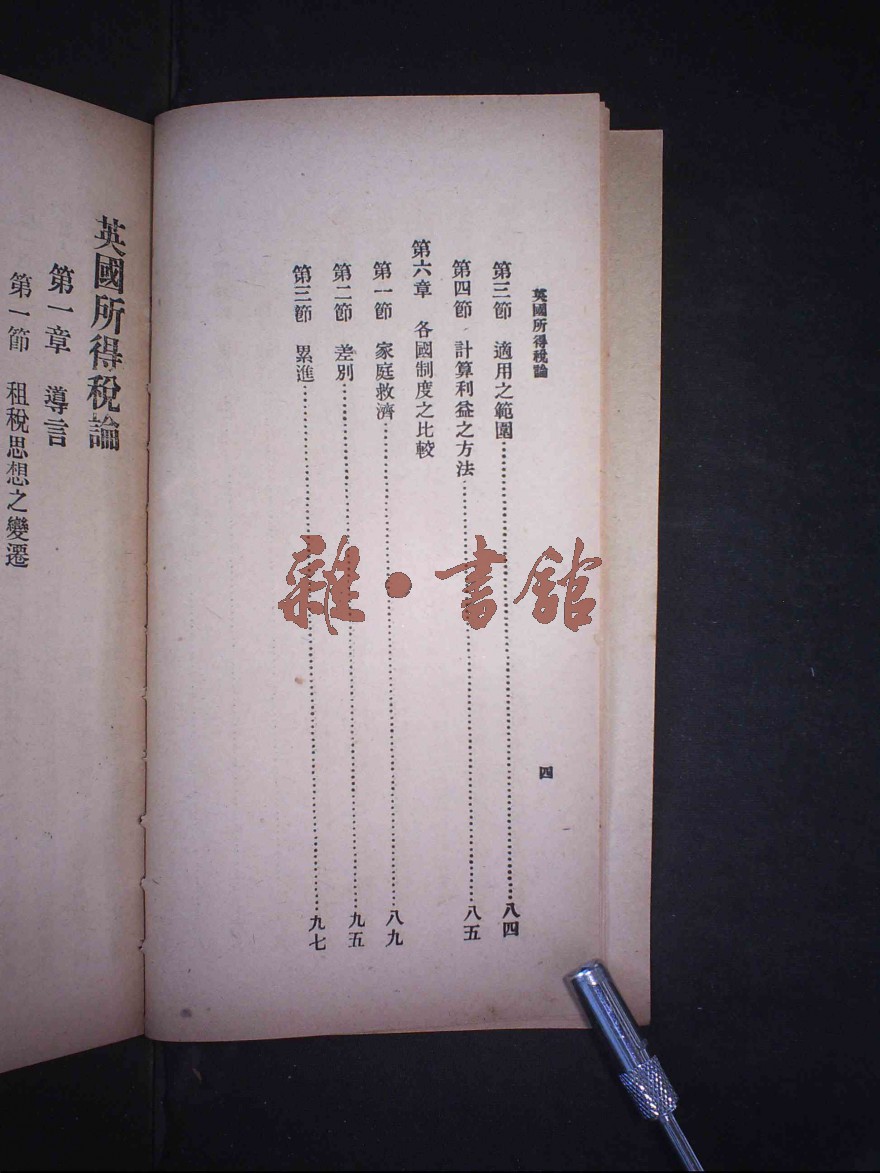 英國所得稅論
四
第三節　適用之範圍…………八四
第四節　計算利益之方法…………八五
第六章　各國制度之比較
第一節　家庭救濟…………八九
第二節　差別…………九五
第三節　累進…………九七
英國所得稅論
第一章　導言
第一節　租稅思想之變遷
雜·書館